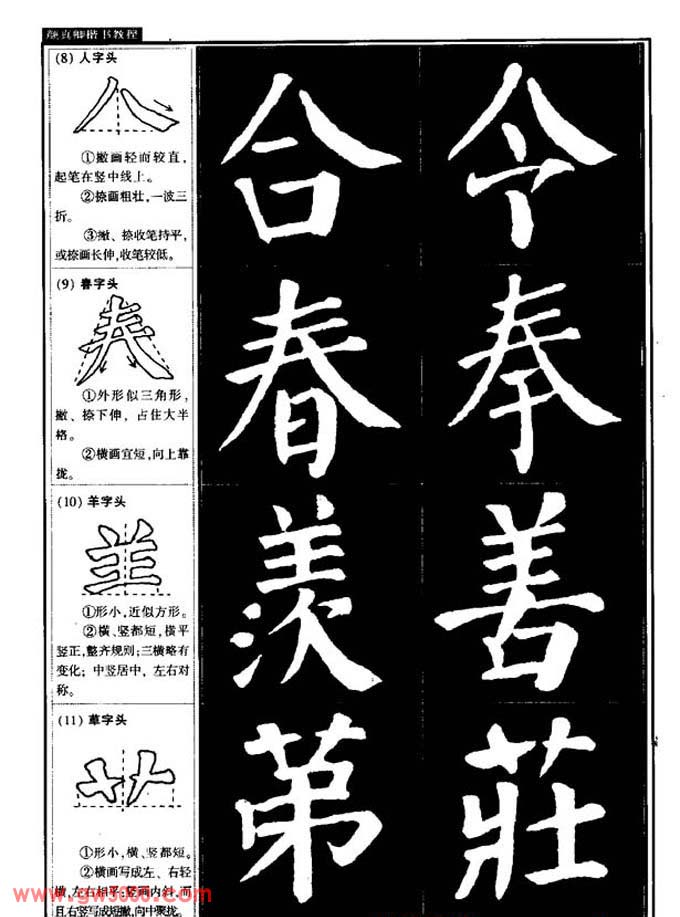 颜真卿楷书教程
(8) 人字头
①撇画轻而较直,
起笔在竖中线上。
②捺画粗壮,一波三
折。
③撇、捺收笔持平,
或捺画长伸,收笔较低。
合 令
(9) 春字头
①外形似三角形,
撇、捺下伸, 占住大半
格。
②横画宜短,向上靠
拢。
春 奉
(10) 羊字头
①形小,近似方形。
②横、竖都短,横平
竖正,整齐规则;三横略有
变化; 中竖居中, 左右对
称。
羡 善
(11) 草字头
①形小,横、竖都短。
②横画写成左、右轻
横,左右相平;竖画内斜,而
且右竖写成短撇,向中聚拢。
苐 莊
www.gw3000.com